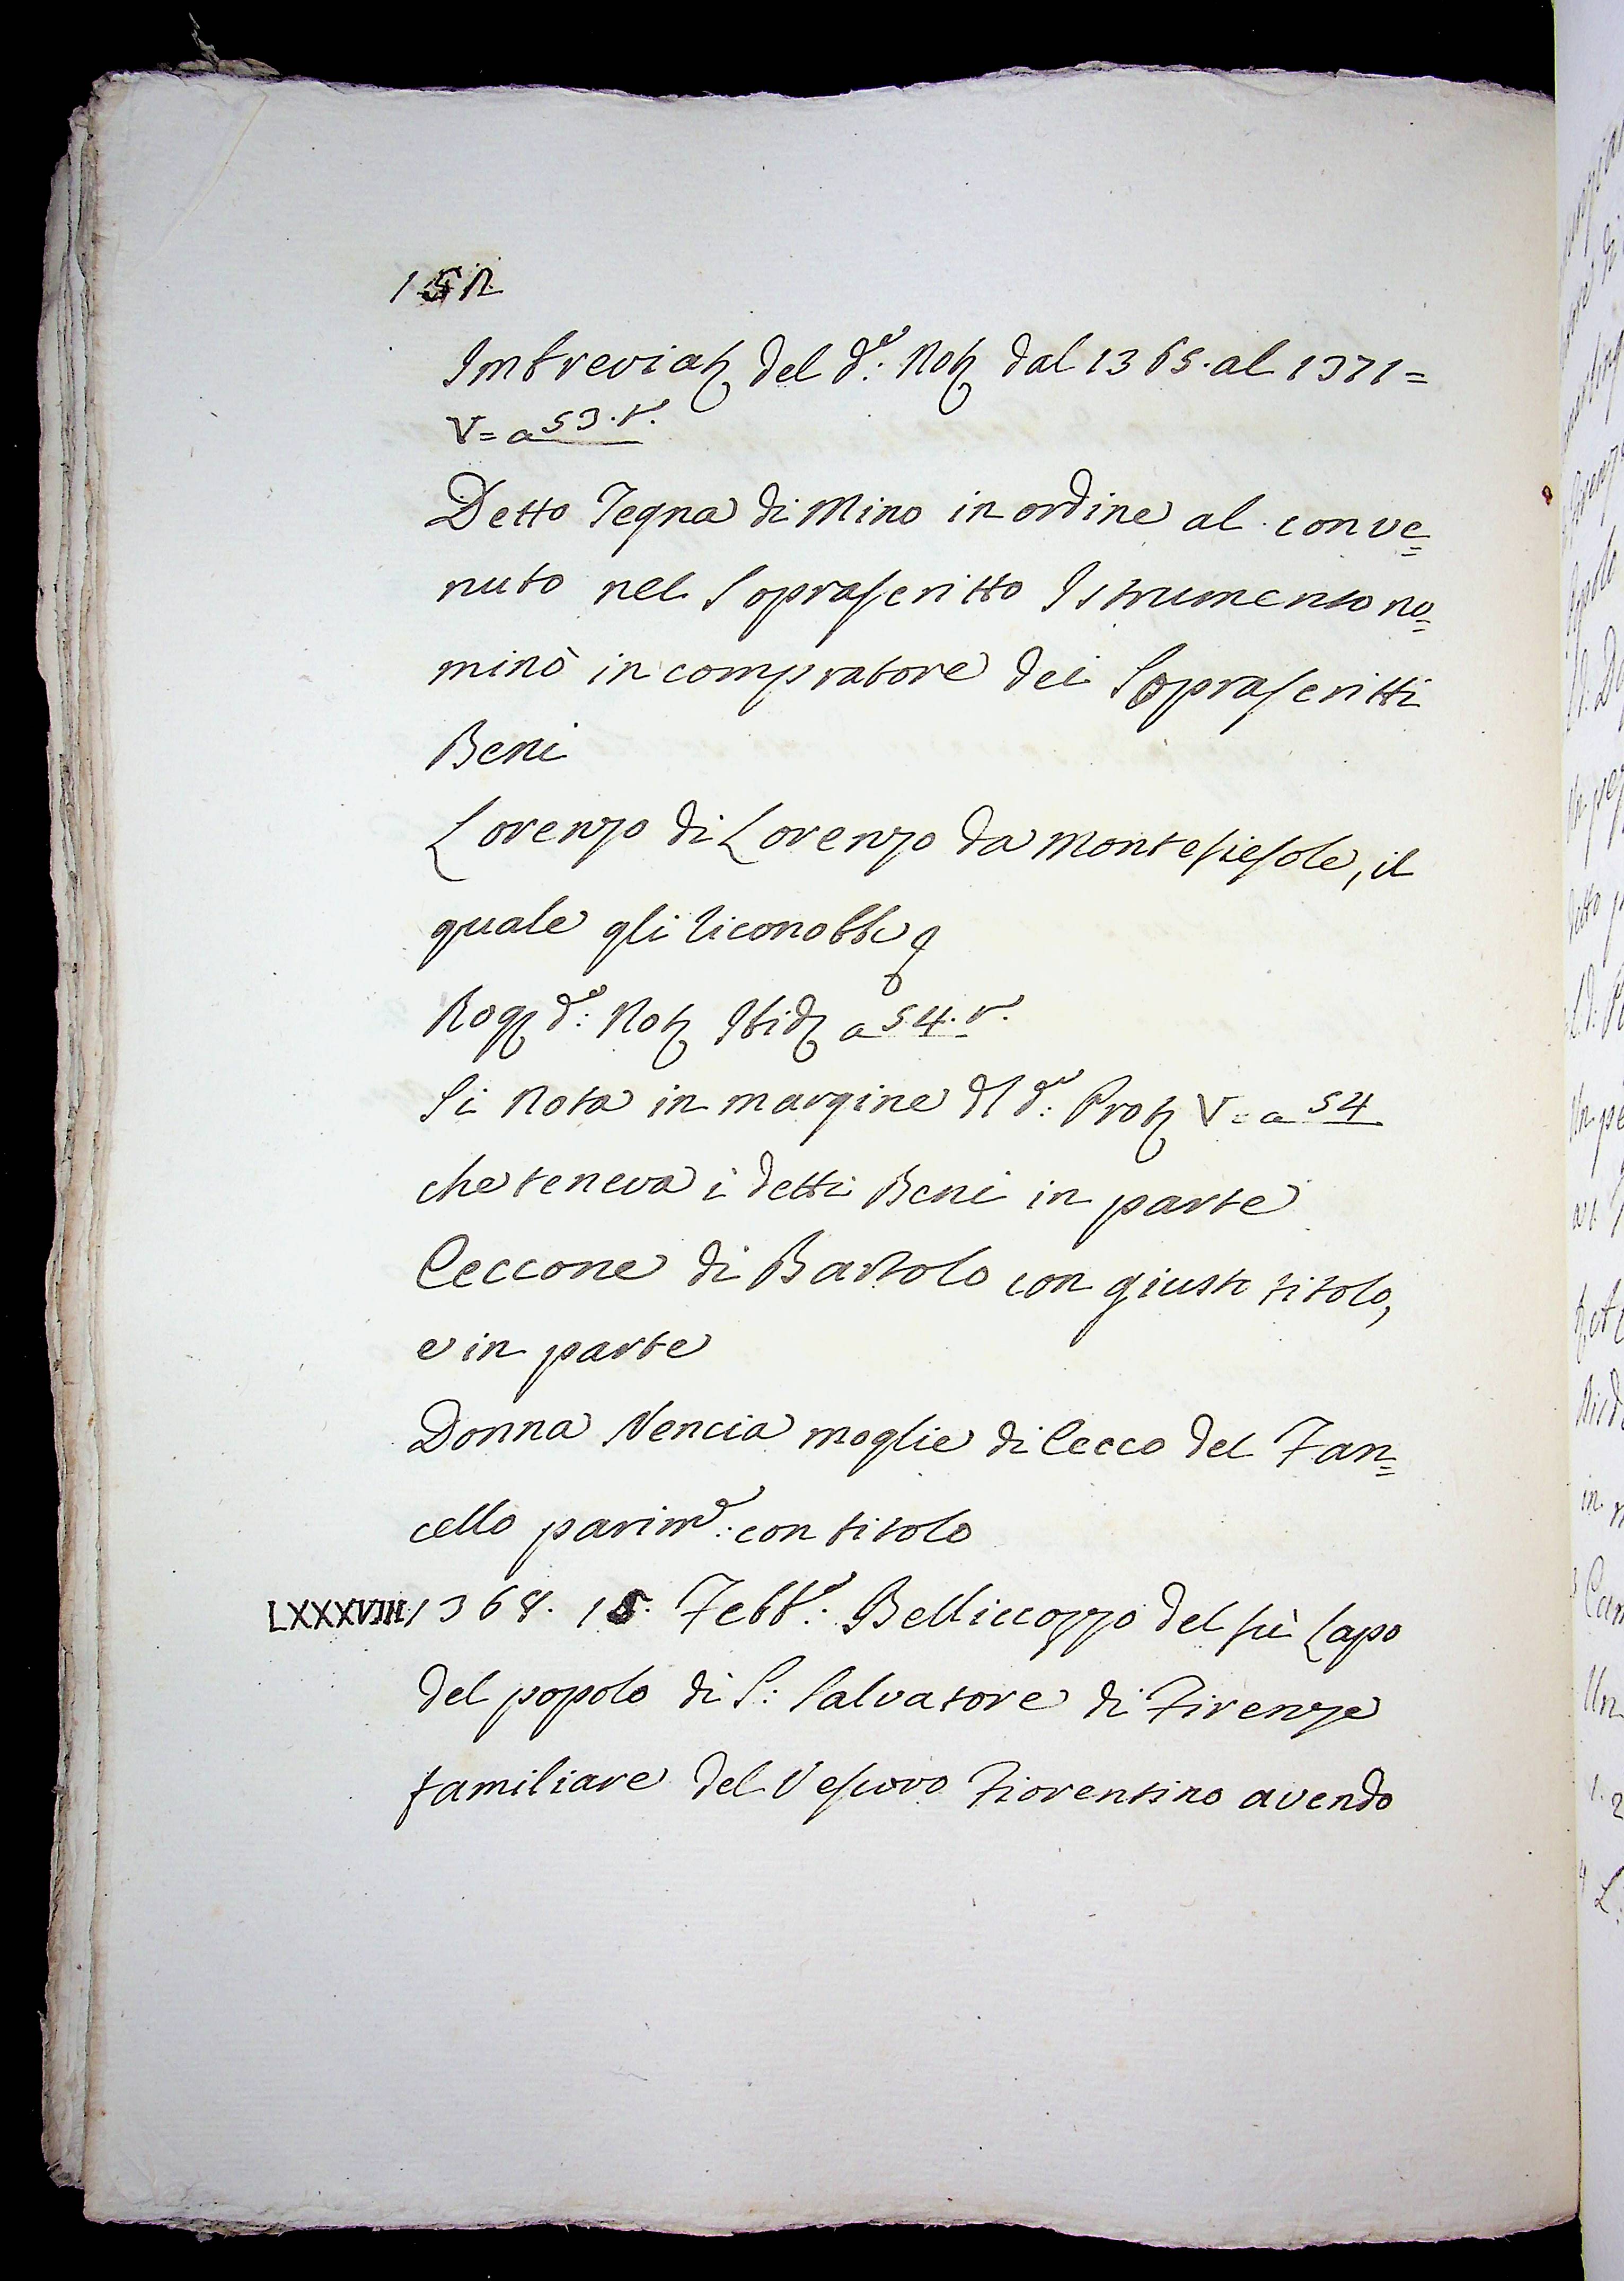 Imbreviaz del d.º Notz dal 1365. al 1371=
V= a 53. r.
Detto Tegna di Mino in ordine al conve=
nuto nel Soprascritto Istrumento no=
minò in compratore dei Soprascritti
Beni
Lorenzo di Lorenzo da Montefiesole, il
quale gli riconobbe
Rogz d.º Notz Ibidz a 54. r.
Si Nota in margine dl d.º Protz V= a 54
che teneva i detti Beni in parte
Ceccone di Bartolo con giusto titolo,
e in parte
Donna Nencia moglie di Cecco del Fan=
cello parim.e con titolo
LXXXVIII. 1368. 15. Febb.º Bellicozzo del fù Lapo
del popolo di S: Salvatore di Firenze
familiare del Vescovo Fiorentino avendo